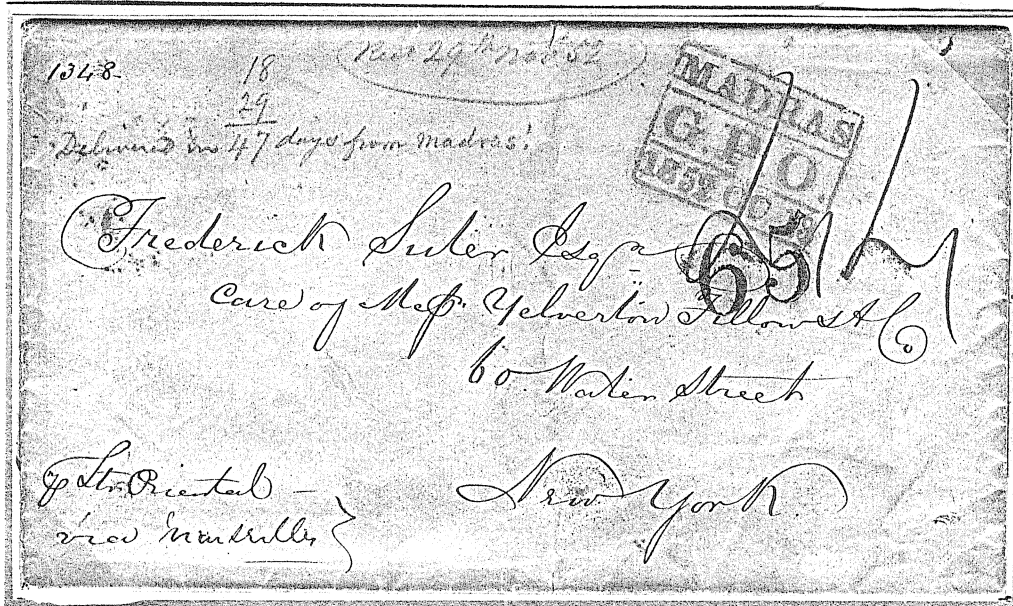 1348-
18
29
Recd 29th Novr 52
Delivered in 47 days from Madras!
MADRAS
G.P.O.
1852 OC
65
Frederick Suter Esqr
Care of Messrs. Yelverton Fellows & Co
60 Water Street
New York
p Str Oriental –
via Marseilles